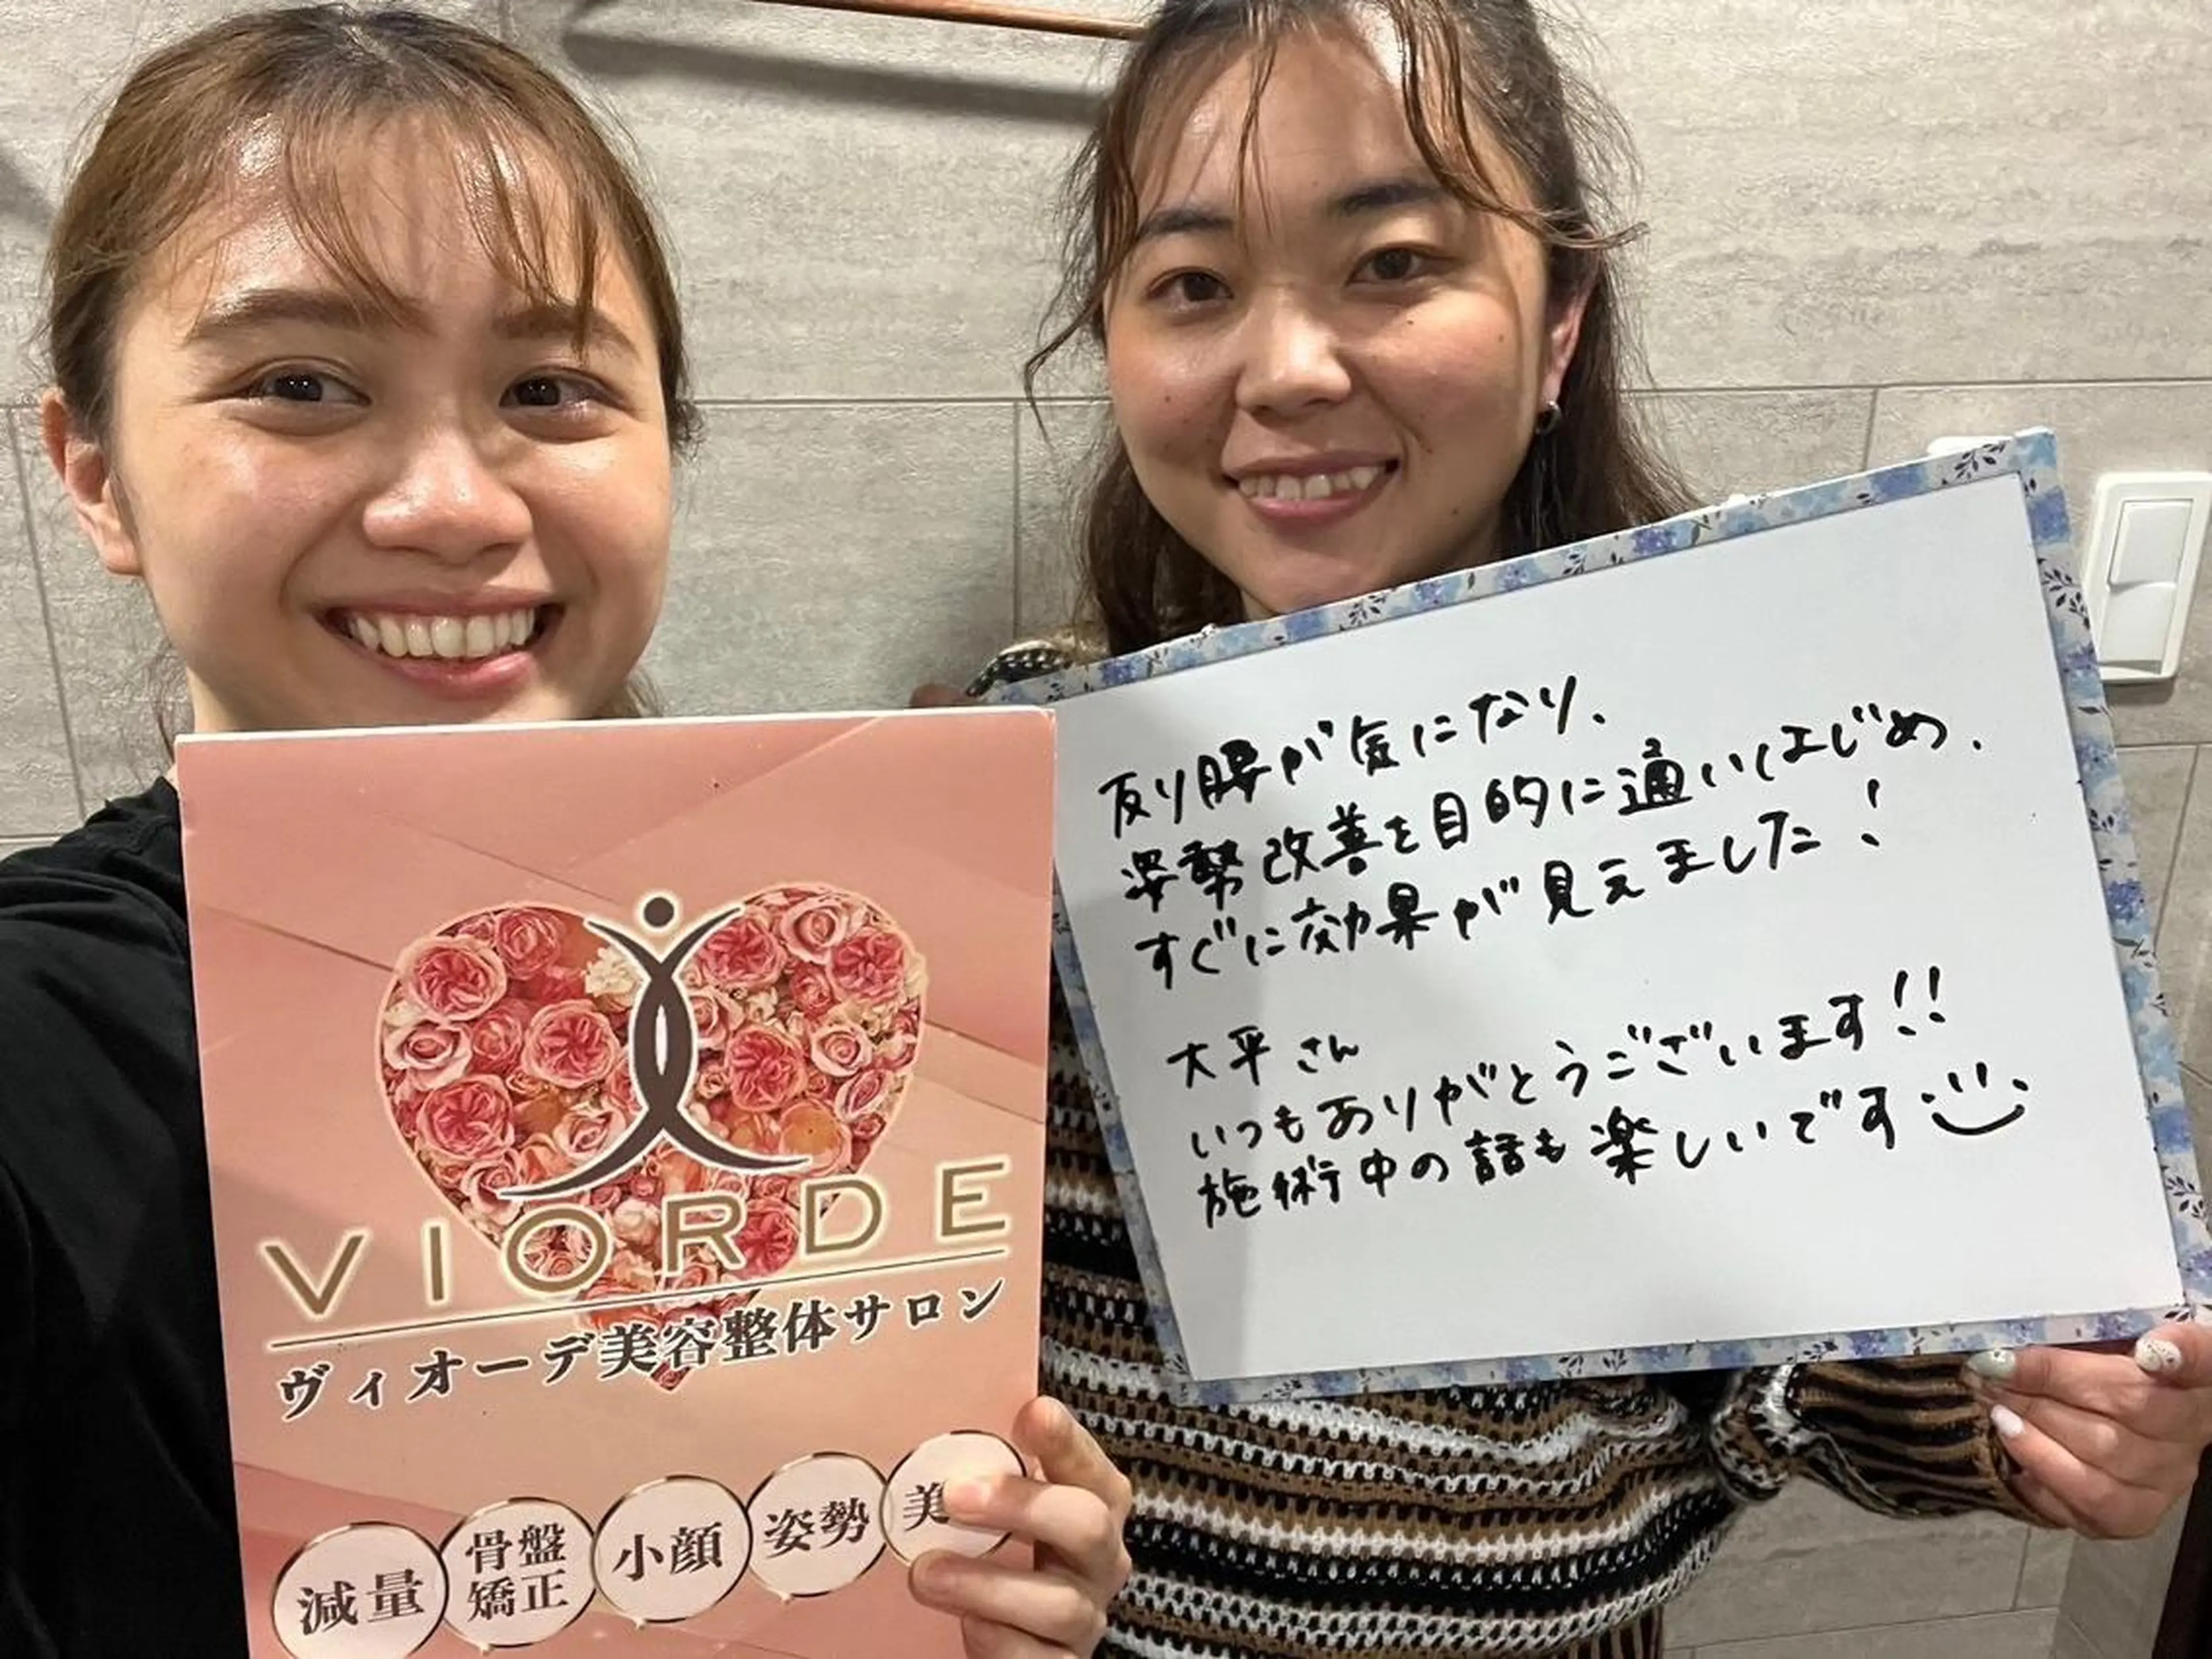 VIORDE
ヴィオーデ美容整体サロン
減量
骨盤
矯正
小顔
姿勢
美
反り腰が気になり、
姿勢改善を目的に通いはじめ、
すぐに効果が見えました！
大平さん
いつもありがとうございます!!
施術中の話も楽しいです